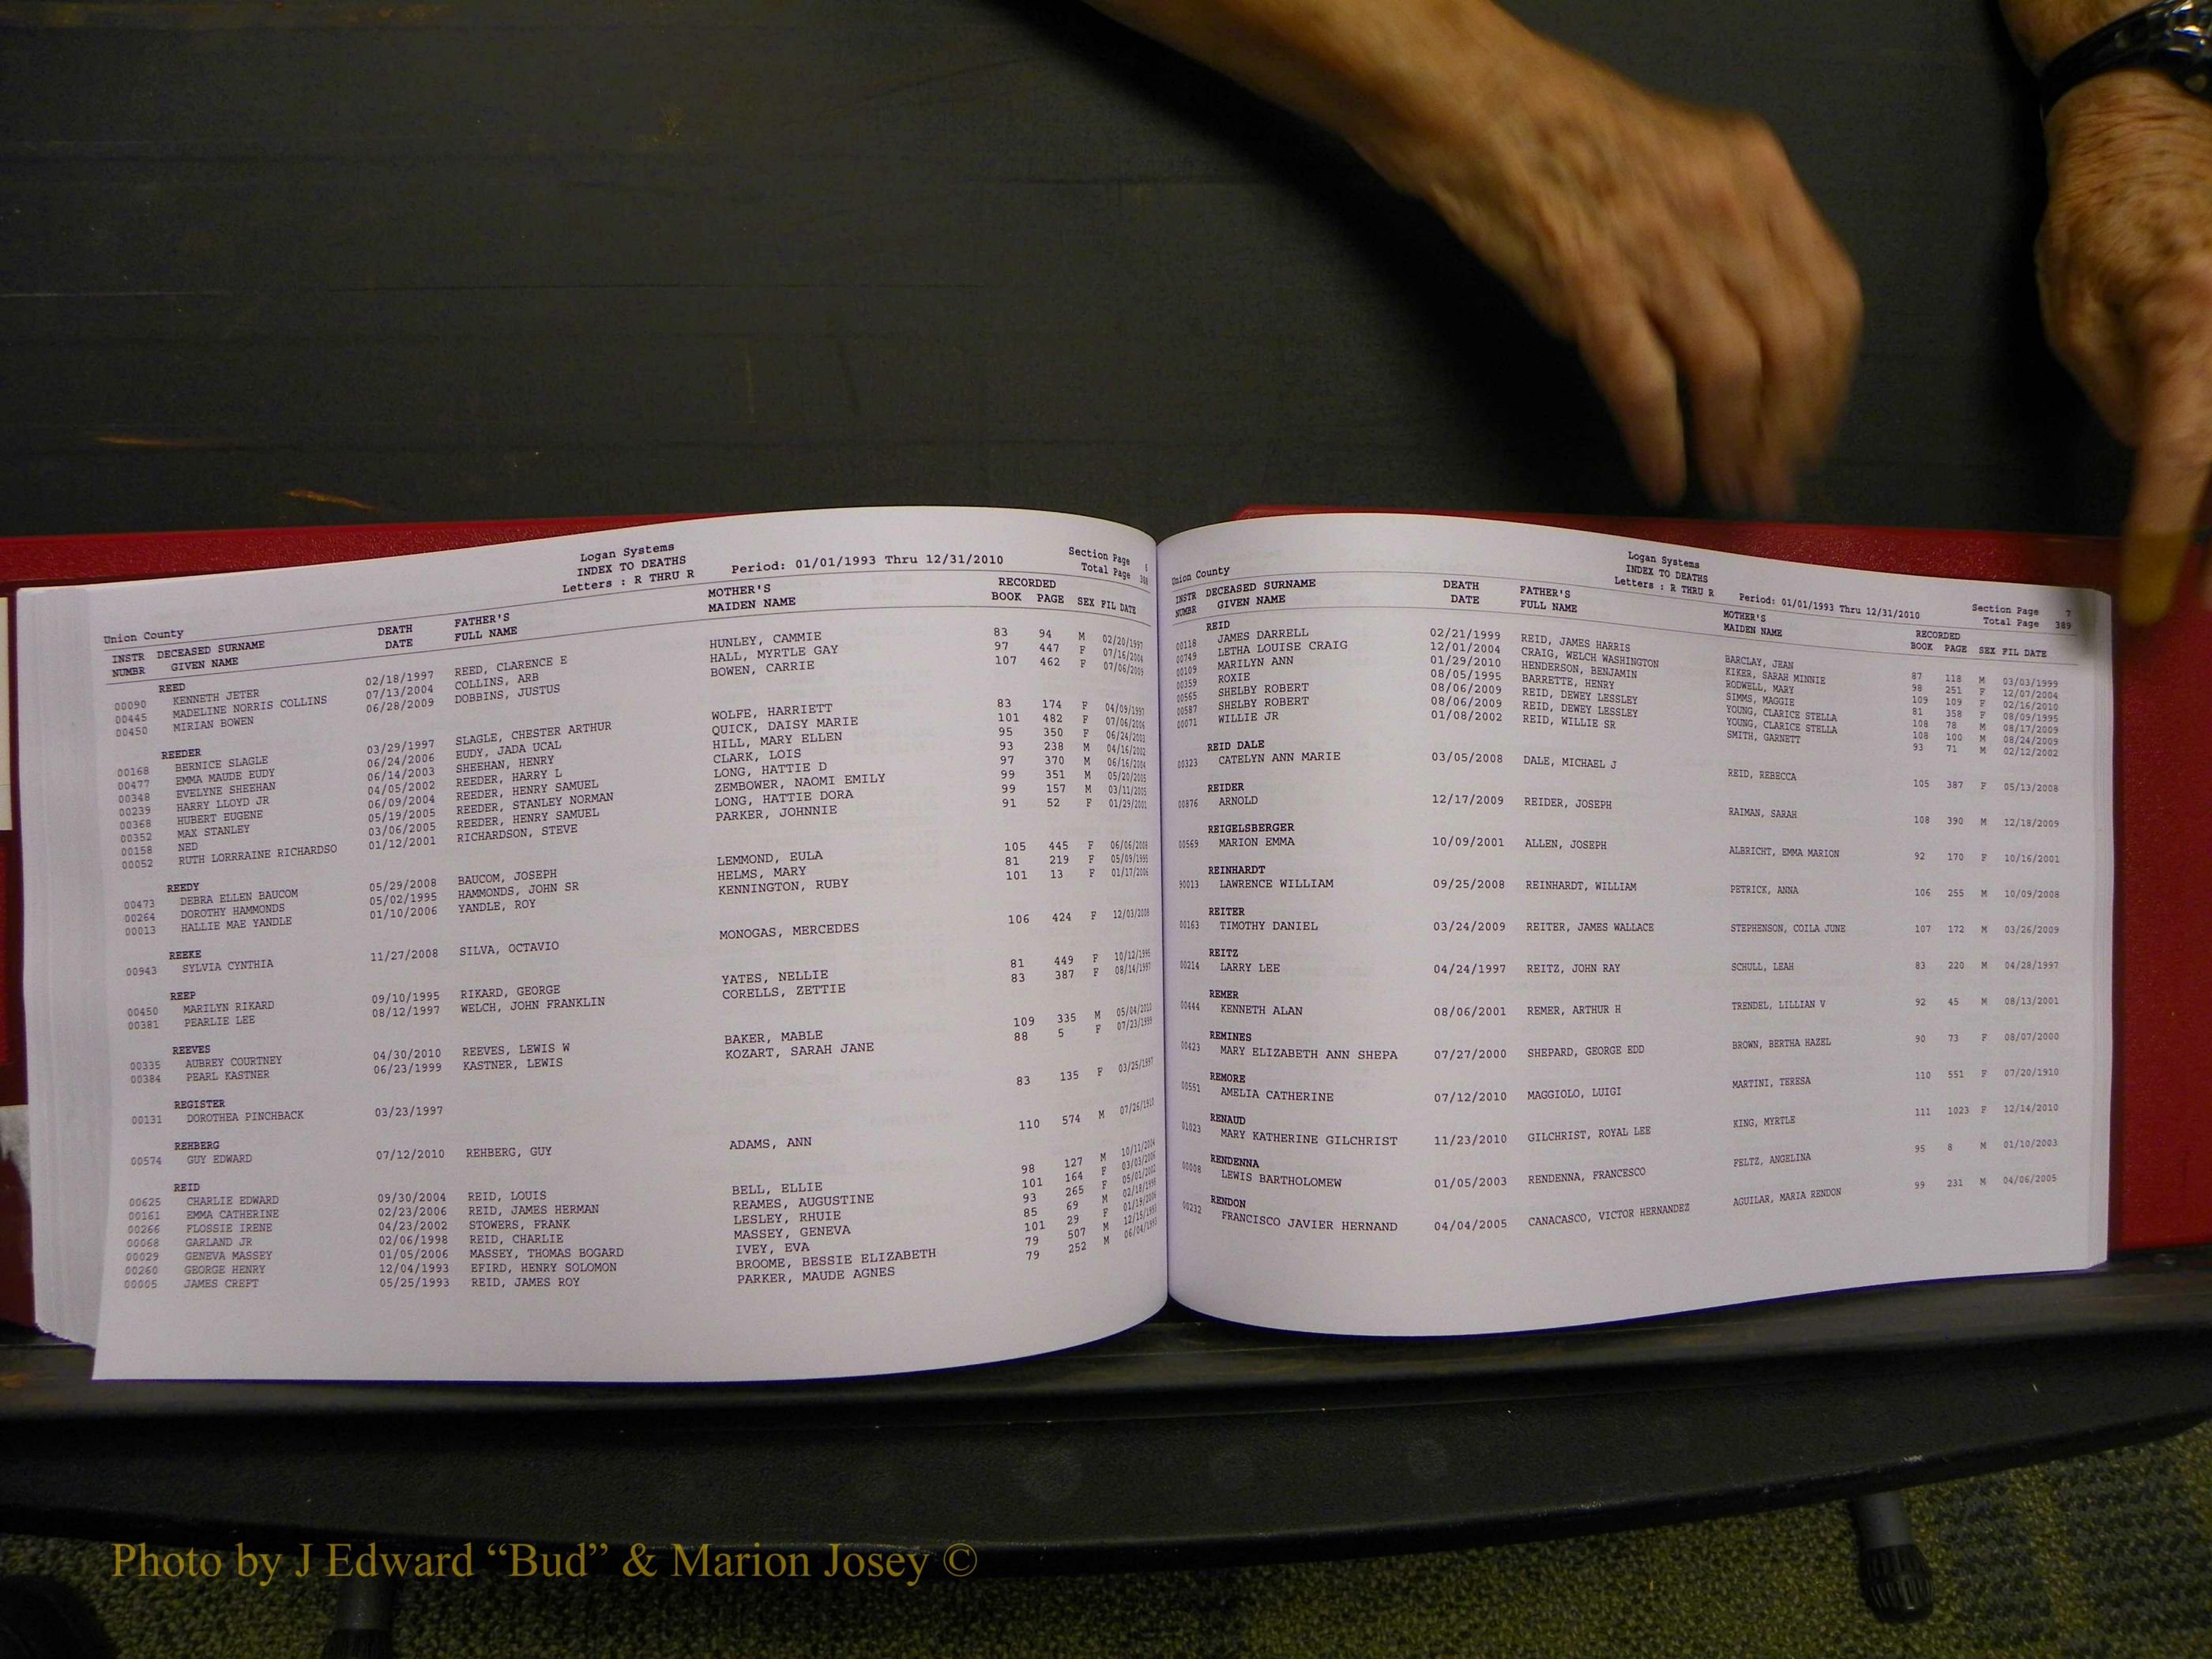 Union County
Logan Systems
INDEX TO DEATHS
Letters : R THRU R Period: 01/01/1993 Thru 12/31/2010
Section Page 6
Total Page 388
INSTR DECEASED SURNAME DEATH FATHER'S MOTHER'S RECORDED
NUMBR GIVEN NAME DATE FULL NAME MAIDEN NAME BOOK PAGE SEX FIL DATE
REED
00090 KENNETH JETER 02/18/1997 REED, CLARENCE E HUNLEY, CAMMIE 83 94 M 02/20/1997
00445 MADELINE NORRIS COLLINS 07/13/2004 COLLINS, ARB HALL, MYRTLE GAY 97 447 F 07/16/2004
00450 MIRIAN BOWEN 06/28/2009 DOBBINS, JUSTUS BOWEN, CARRIE 107 462 F 07/06/2009
REEDER
00168 BERNICE SLAGLE 03/29/1997 SLAGLE, CHESTER ARTHUR WOLFE, HARRIETT 83 174 F 04/09/1997
00477 EMMA MAUDE EUDY 06/24/2006 EUDY, JADA UCAL QUICK, DAISY MARIE 101 482 F 07/06/2006
00348 EVELYNE SHEEHAN 06/14/2003 SHEEHAN, HENRY HILL, MARY ELLEN 95 350 F 06/24/2003
00239 HARRY LLOYD JR 04/05/2002 REEDER, HARRY L CLARK, LOIS 93 238 M 04/16/2002
00368 HUBERT EUGENE 06/09/2004 REEDER, HENRY SAMUEL LONG, HATTIE D 97 370 M 06/16/2004
00352 MAX STANLEY 05/19/2005 REEDER, STANLEY NORMAN ZEMBOWER, NAOMI EMILY 99 351 M 05/20/2005
00158 NED 03/06/2005 REEDER, HENRY SAMUEL LONG, HATTIE DORA 99 157 M 03/11/2005
00052 RUTH LORRRAINE RICHARDSO 01/12/2001 RICHARDSON, STEVE PARKER, JOHNNIE 91 52 F 01/29/2001
REEDY
00473 DEBRA ELLEN BAUCOM 05/29/2008 BAUCOM, JOSEPH LEMMOND, EULA 105 445 F 06/06/2008
00264 DOROTHY HAMMONDS 05/02/1995 HAMMONDS, JOHN SR HELMS, MARY 81 219 F 05/09/1995
00013 HALLIE MAE YANDLE 01/10/2006 YANDLE, ROY KENNINGTON, RUBY 101 13 F 01/17/2006
REEKE
00943 SYLVIA CYNTHIA 11/27/2008 SILVA, OCTAVIO MONOGAS, MERCEDES 106 424 F 12/03/2008
REEP
00450 MARILYN RIKARD 09/10/1995 RIKARD, GEORGE YATES, NELLIE 81 449 F 10/12/1995
00381 PEARLIE LEE 08/12/1997 WELCH, JOHN FRANKLIN CORELLS, ZETTIE 83 387 F 08/14/1997
REEVES
00335 AUBREY COURTNEY 04/30/2010 REEVES, LEWIS W BAKER, MABLE 109 335 M 05/04/2010
00384 PEARL KASTNER 06/23/1999 KASTNER, LEWIS KOZART, SARAH JANE 88 5 F 07/23/1999
REGISTER
00131 DOROTHEA PINCHBACK 03/23/1997 83 135 F 03/25/1997
REHBERG
00574 GUY EDWARD 07/12/2010 REHBERG, GUY ADAMS, ANN 110 574 M 07/26/1910
REID
00625 CHARLIE EDWARD 09/30/2004 REID, LOUIS BELL, ELLIE 98 127 M 10/11/2004
00161 EMMA CATHERINE 02/23/2006 REID, JAMES HERMAN REAMES, AUGUSTINE 101 164 F 03/03/2006
00266 FLOSSIE IRENE 04/23/2002 STOWERS, FRANK LESLEY, RHUIE 93 265 F 05/01/2002
00068 GARLAND JR 02/06/1998 REID, CHARLIE MASSEY, GENEVA 85 69 M 02/18/1998
00029 GENEVA MASSEY 01/05/2006 MASSEY, THOMAS BOGARD IVEY, EVA 101 29 F 01/19/2006
00260 GEORGE HENRY 12/04/1993 EFIRD, HENRY SOLOMON BROOME, BESSIE ELIZABETH 79 507 M 12/15/1993
00005 JAMES CREFT 05/25/1993 REID, JAMES ROY PARKER, MAUDE AGNES 79 252 M 06/04/1993
Union County
Logan Systems
INDEX TO DEATHS
Letters : R THRU R Period: 01/01/1993 Thru 12/31/2010
Section Page 7
Total Page 389
INSTR DECEASED SURNAME DEATH FATHER'S MOTHER'S RECORDED
NUMBR GIVEN NAME DATE FULL NAME MAIDEN NAME BOOK PAGE SEX FIL DATE
REID
00118 JAMES DARRELL 02/21/1999 REID, JAMES HARRIS BARCLAY, JEAN 87 118 M 03/03/1999
00749 LETHA LOUISE CRAIG 12/01/2004 CRAIG, WELCH WASHINGTON KIKER, SARAH MINNIE 98 251 F 12/07/2004
00109 MARILYN ANN 01/29/2010 HENDERSON, BENJAMIN RODWELL, MARY 109 109 F 02/16/2010
00359 ROXIE 08/05/1995 BARRETTE, HENRY SIMMS, MAGGIE 81 358 F 08/09/1995
00565 SHELBY ROBERT 08/06/2009 REID, DEWEY LESSLEY YOUNG, CLARICE STELLA 108 78 M 08/17/2009
00587 SHELBY ROBERT 08/06/2009 REID, DEWEY LESSLEY YOUNG, CLARICE STELLA 108 100 M 08/24/2009
00071 WILLIE JR 01/08/2002 REID, WILLIE SR SMITH, GARNETT 93 71 M 02/12/2002
REID DALE
00323 CATELYN ANN MARIE 03/05/2008 DALE, MICHAEL J REID, REBECCA 105 387 F 05/13/2008
REIDER
00876 ARNOLD 12/17/2009 REIDER, JOSEPH RAIMAN, SARAH 108 390 M 12/18/2009
REIGELSBERGER
00569 MARION EMMA 10/09/2001 ALLEN, JOSEPH ALBRICHT, EMMA MARION 92 170 F 10/16/2001
REINHARDT
90013 LAWRENCE WILLIAM 09/25/2008 REINHARDT, WILLIAM PETRICK, ANNA 106 255 M 10/09/2008
REITER
00163 TIMOTHY DANIEL 03/24/2009 REITER, JAMES WALLACE STEPHENSON, COILA JUNE 107 172 M 03/26/2009
REITZ
00214 LARRY LEE 04/24/1997 REITZ, JOHN RAY SCHULL, LEAH 83 220 M 04/28/1997
REMER
00444 KENNETH ALAN 08/06/2001 REMER, ARTHUR H TRENDEL, LILLIAN V 92 45 M 08/13/2001
REMINES
00423 MARY ELIZABETH ANN SHEPA 07/27/2000 SHEPARD, GEORGE EDD BROWN, BERTHA HAZEL 90 73 F 08/07/2000
REMORE
00551 AMELIA CATHERINE 07/12/2010 MAGGIOLO, LUIGI MARTINI, TERESA 110 551 F 07/20/1910
RENAUD
01023 MARY KATHERINE GILCHRIST 11/23/2010 GILCHRIST, ROYAL LEE KING, MYRTLE 111 1023 F 12/14/2010
RENDENNA
00008 LEWIS BARTHOLOMEW 01/05/2003 RENDENNA, FRANCESCO FELTZ, ANGELINA 95 8 M 01/10/2003
RENDON
00232 FRANCISCO JAVIER HERNAND 04/04/2005 CANACASCO, VICTOR HERNANDEZ AGUILAR, MARIA RENDON 99 231 M 04/06/2005
Photo by J Edward “Bud” & Marion Josey ©